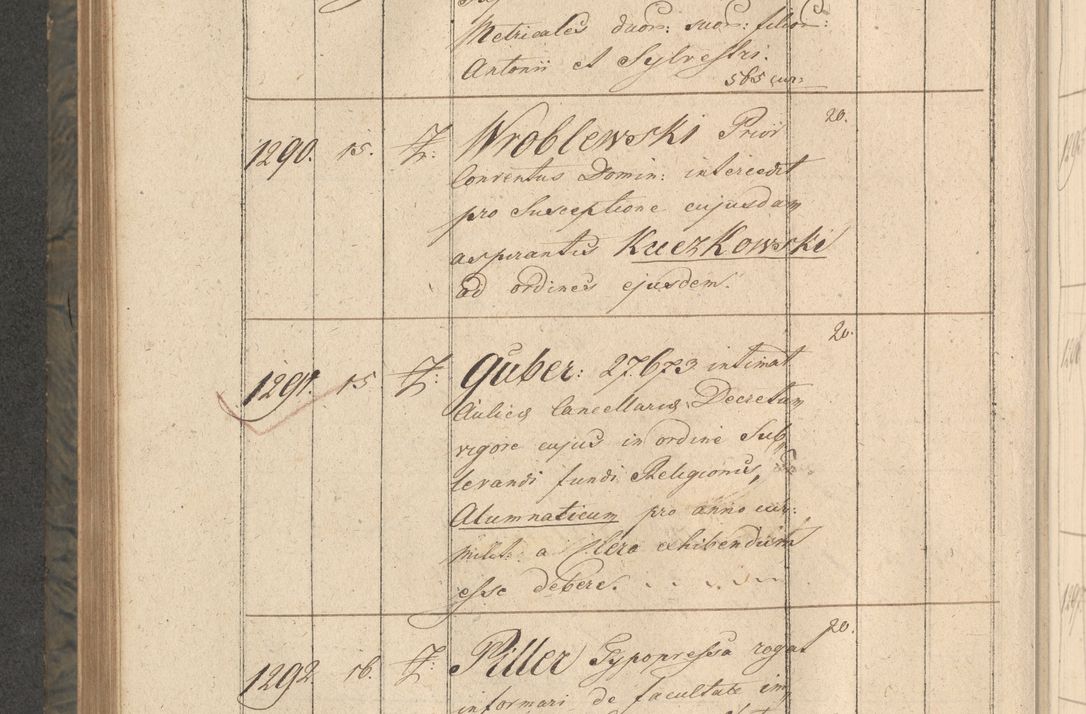 Metricales duor: suor: filior:
Antonii et Sylvestri.
565 cur:
20.
1290. 15. Wroblewski Prior
Conventus Domin: intercedit
pro Susceptione cujusdam
aspirantis Kuczkowski
ad ordines ejusdem.
20.
1291. 15 Guber: 27673 intimat
Aulicis Cancellariis Decretum
vigore cujus in ordine Sub
levandi fundi Religionis,
Alumnaticum pro anno cur:
milit: a Clero exhibendum
esse debere.
20.
1292. 16. Piller Typopressa rogat
informari de facultate im